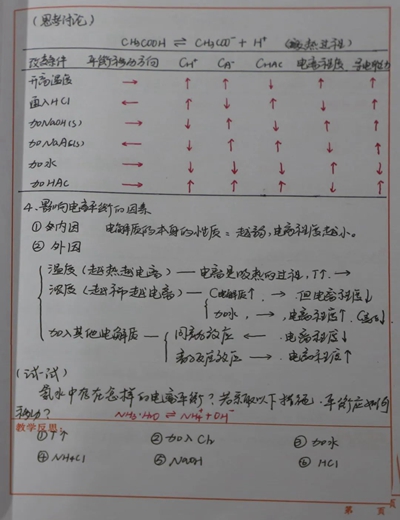 (思考讨论)
CH₃COOH ⇌ CH₃COO⁻ + H⁺ (吸热过程)
改变条件 平衡移动方向 C_H⁺ C_A⁻ C_HAC 电离程度 导电能力
升高温度 → ↑ ↑ ↓ ↑ ↑
通入HCl ← ↑ ↓ ↑ ↓ ↑
加NaOH(s) → ↓ ↑ ↓ ↑ ↑
加NaAc(s) ← ↓ ↑ ↑ ↓ ↑
加水 → ↓ ↓ ↓ ↑ ↓
加HAC → ↑ ↑ ↑ ↓ ↑
4.影响电离平衡的因素
① 内因 电解质的本身的性质:越弱,电离程度越小。
② 外因
温度(越热越电离)— 电离是吸热的过程,T↑.→
浓度(越稀越电离)— C电解质↑. →.但电离程度↓
加水, →,电离程度↑.
加入其他电解质— 同离子效应 ← .电离程度↓
离子反应效应 → .电离程度↑
(试一试)
氨水中存在怎样的电离平衡?若采取以下措施.平衡应如何
移动? NH₃·H₂O ⇌ NH₄⁺ + OH⁻
教学反思:
① T↑ ② 加入 ③ 加水
④ NH₄Cl ⑤ NaOH ⑥ HCl
第 页 页